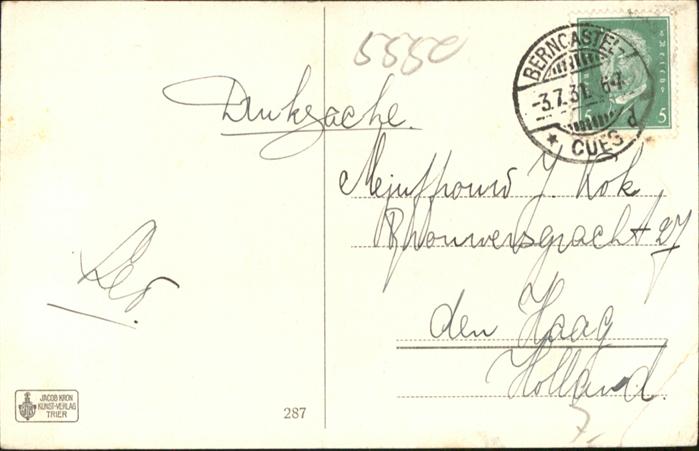 2995
BERNCASTEL-
-3.7.31. 6-7
d
★ CUES ★
5 5
Drucksache.
Mejuffrouw J. Kok
Brouwersgracht 27
den Haag
Holland.
Leo
JACOB KRON
KUNST-VERLAG
TRIER
287